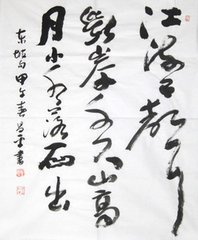 江流有声断
岸千尺山高
月小水落石出
东坡句甲午春昌平书